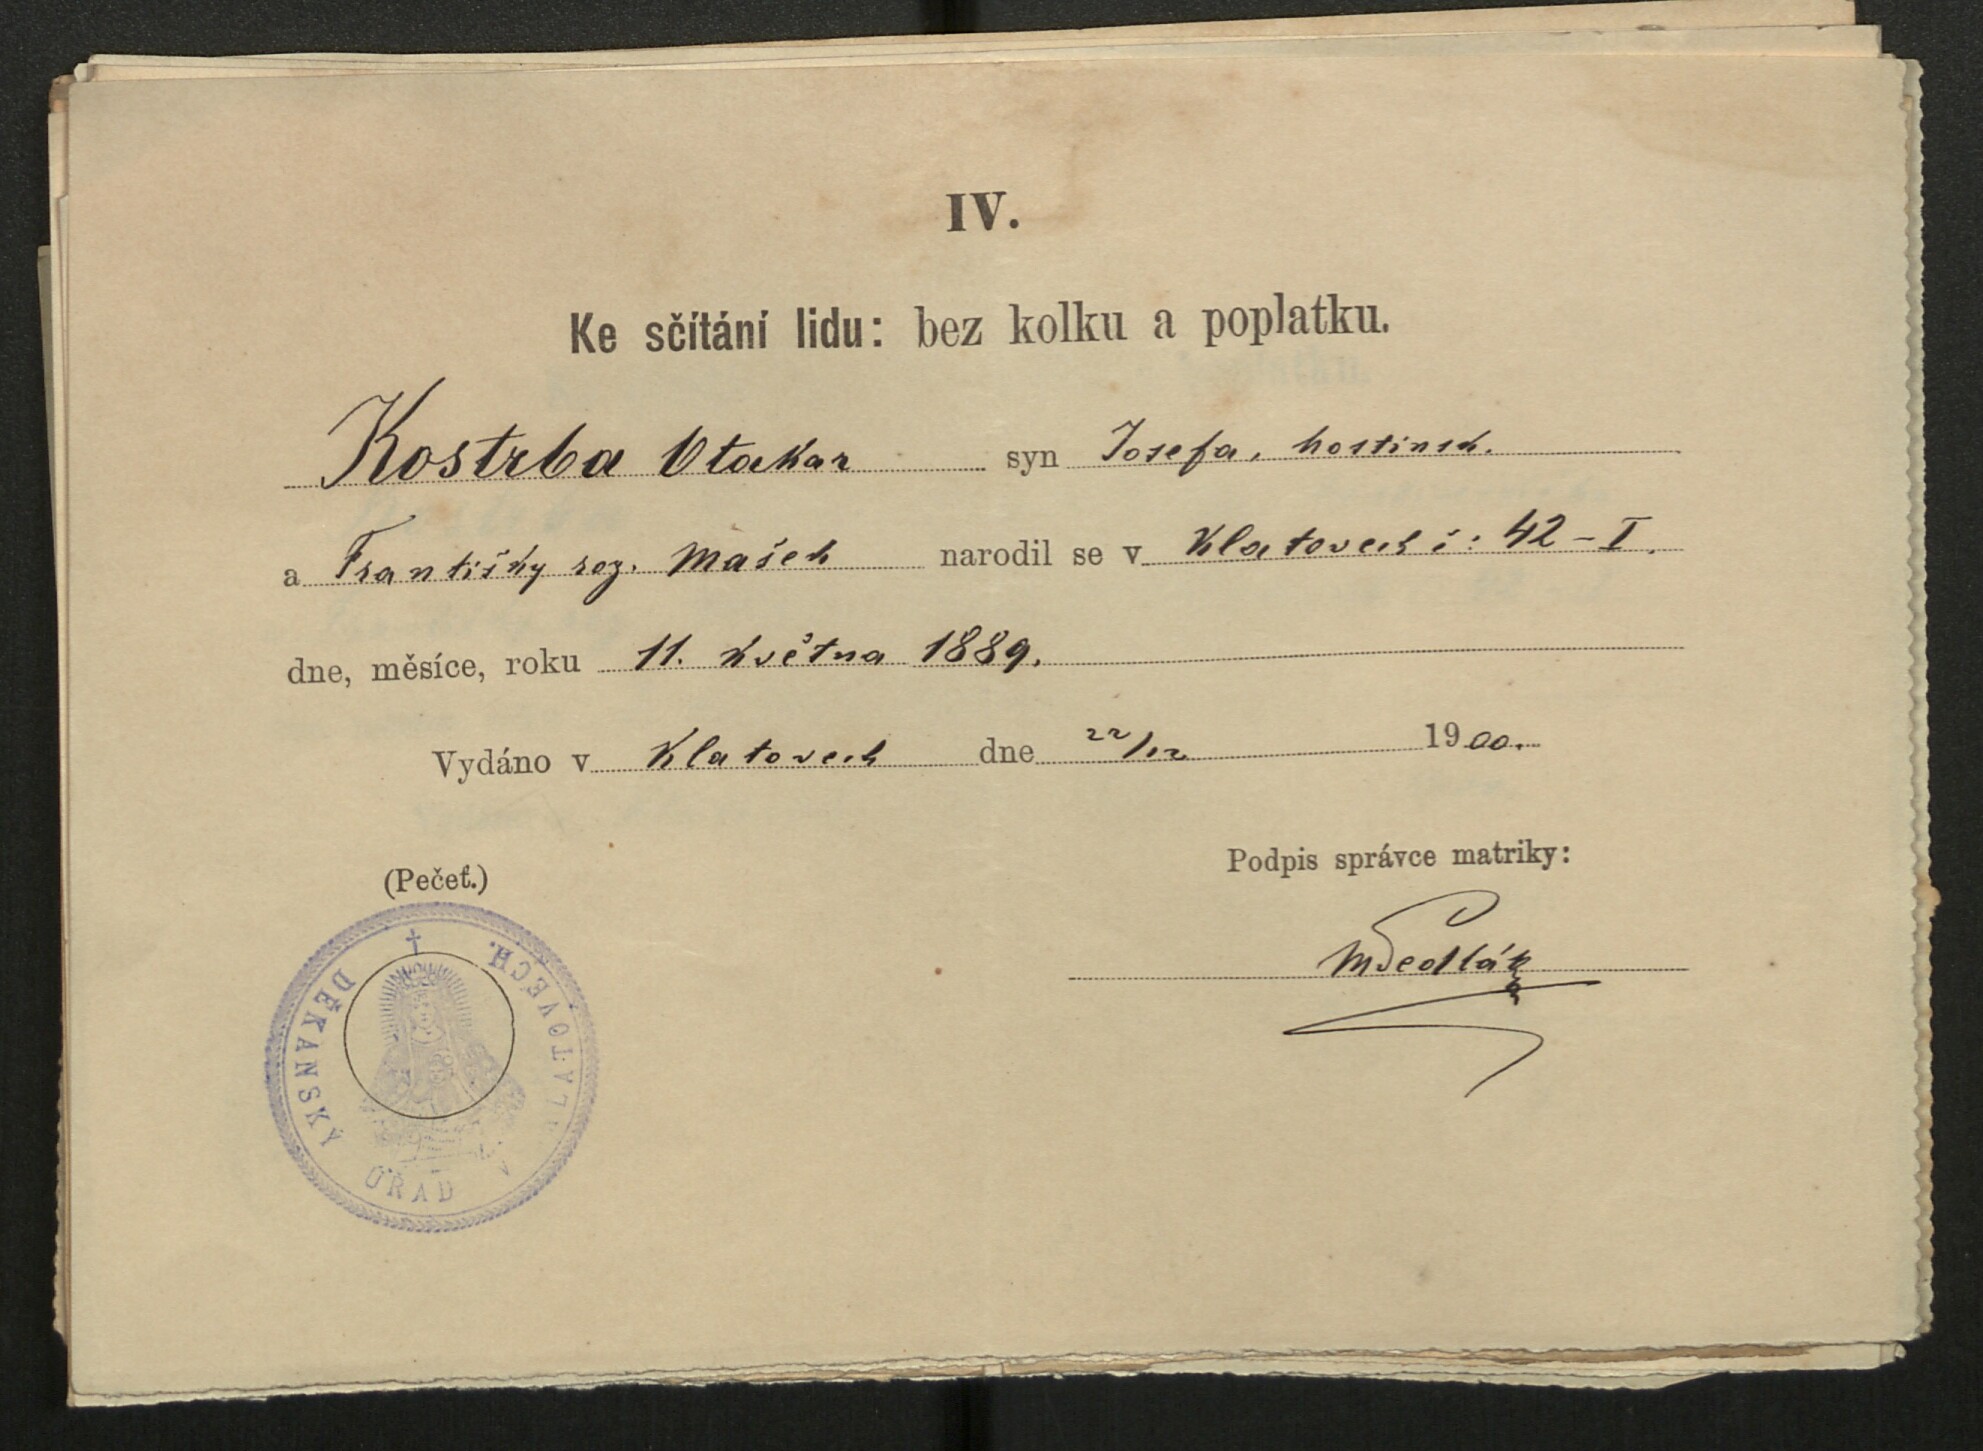 IV.
Ke sčítání lidu: bez kolku a poplatku.
Kostrba Otakar syn Josefa, hostinsk.
a Františky roz. Mašek narodil se v Klatovech č: 42 – I.
dne, měsíce, roku 11. května 1889.
Vydáno v Klatovech dne 22/12 1900.
(Pečeť.)
Podpis správce matriky:
DĚKANSKÝ ÚŘAD V KLATOVECH.